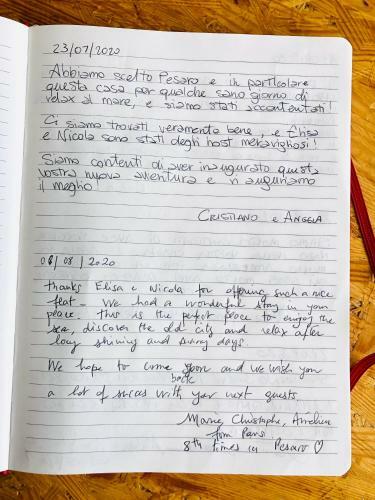 23/07/2020
Abbiamo scelto Pesaro e in particolare
questa casa per qualche sano giorno di
relax al mare, e siamo stati accontentati!
Ci siamo trovati veramente bene, e Elisa
e Nicola sono stati degli host meravigliosi!
Siamo contenti di aver inaugurato questa
vostra nuova avventura e vi auguriamo
il meglio!
CRISTIANO e ANGELA
08/08/2020
thanks Elisa e Nicola for offering such a nice
flat - We had a wonderful stay in your
place. this is the perfect peace to enjoy the
sea, discover the old city and relax after
long shining and sunny days.
We hope to come soon and we wish you
back
a lot of succes with your next guests.
Marie, Christophe,
from Paris
8th times in Pesaro ♡